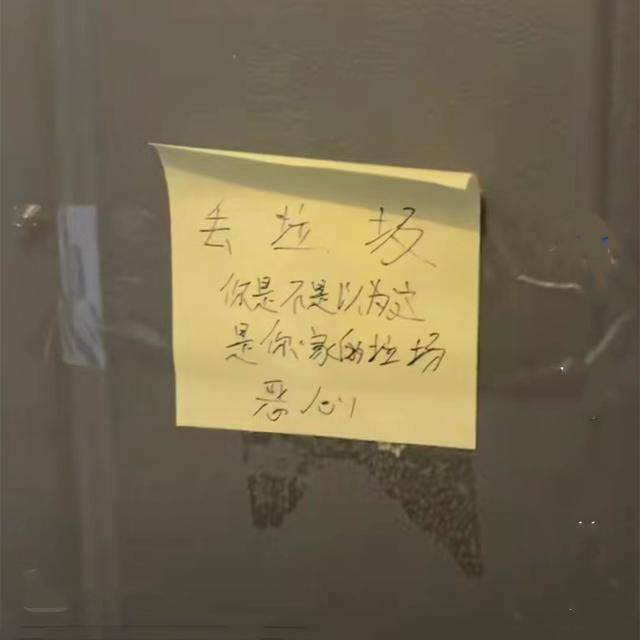 丢垃圾
你是不是以为这
是你家的垃圾
恶心